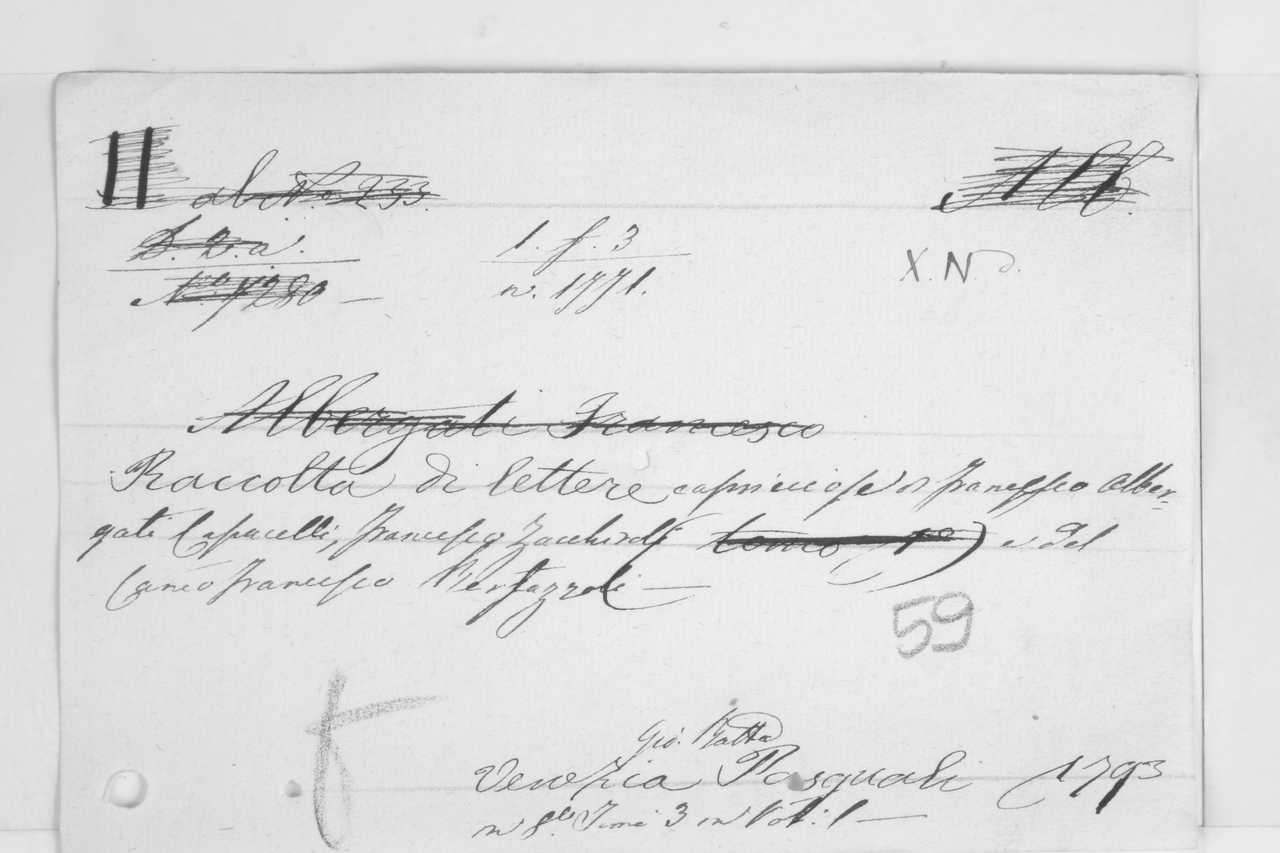 al N.o 233.
1. f. 3
X. N.
N.o 1280
n. 1771.
Albergati Francesco
Raccolta di lettere capricciose di Francesco Alber-
gati Capacelli, Francesco Zacchiroli tomo 1o) e del
Francesco Bertazzoli
59
f
Gio. Batta
Venezia Pasquali 1793
in 8.o Tomi 3 in Vol. 1